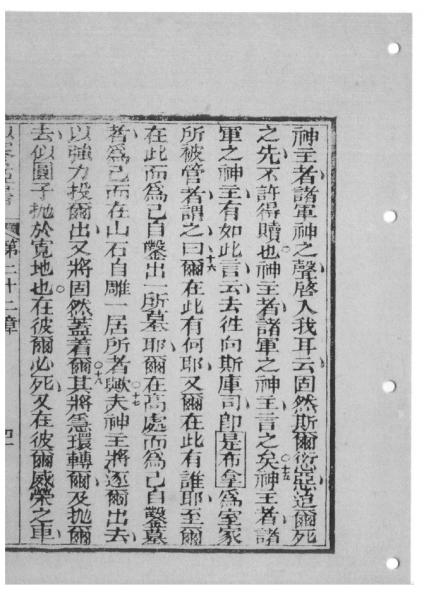 神主者諸軍神之聲啓入我耳云固然斯爾衍忒迨爾死
之先不許得贖也神主者諸軍之神主言之矣十五神主者諸
軍之神主有如此言云去徃向斯庫司卽是布拿為室家
所被管者謂之曰十六爾在此有何耶又爾在此有誰耶至爾
在此而為己自鑿出一所墓耶爾在高處而為己自鑿墓
者為己而在山石自雕一居所者歟十七夫神主將逐爾出去
以強力投爾出又將固然蓋着爾十八其將急環轉爾及拋爾
去似圓子拋於寬地也在彼爾必死又在彼爾威榮之車
第二十二章